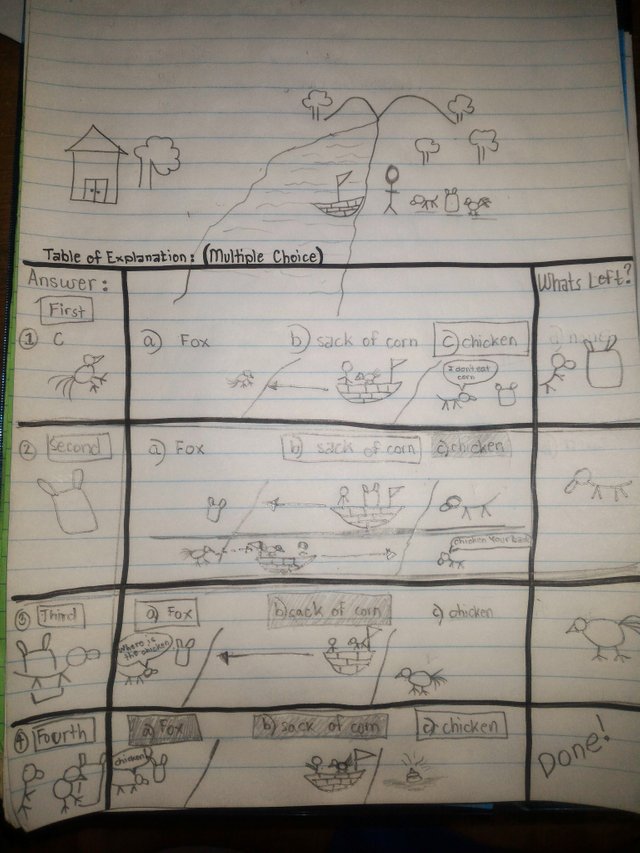 Table of Explanation: (Multiple Choice)
Answer:
Whats Left?
First
① C
a) Fox
b) sack of corn
c) chicken
I don't eat corn
② Second
a) Fox
b) sack of corn
c) chicken
chicken Your back
③ Third
a) Fox
b) sack of corn
c) chicken
Where is the chicken
④ Fourth
a) Fox
b) sack of corn
c) chicken
chicken!
Done!